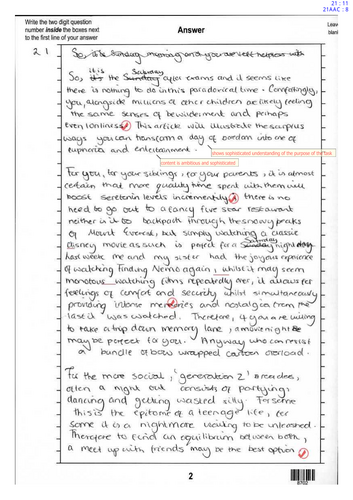 21 : 11
21AAC : 8
Write the two digit question
number inside the boxes next
to the first line of your answer
Answer
Leave
blank
2 1
So, it is the Saturday after exams and it seems like
there is nothing to do in this paradoxical time. Confusingly,
you, alongside millions of other children are likely feeling
the same senses of bewilderment and perhaps
even lonliness. This article will illustrate the surplus
ways you can transform a day of boredom into one of
euphoria and entertainment.
shows sophisticated understanding of the purpose of the task
content is ambitious and sophisticated
For you, for your siblings, for your parents, it is almost
certain that more quality time spent with them will
boost seretonin levels incrementally, there is no
need to go out to a fancy five star restaurant
neither is it to backpack through the snowy peaks
of Mount Everest, but simply watching a classic
disney movie as such is perfect for a Saturday night
last week me and my sister had the joyous experience
of watching Finding Nemo again, whilst it may seem
monotous watching films repeatedly over, it allows for
feelings of comfort and security whilst simultaneously
providing intense memories and nostalgia from the
last it was watched. Therefore, if you are willing
to take a trip down memory lane, a movie night
may be perfect for you. Anyway who can resist
a bundle of boxes wrapped cartoon overload.
For the more social, 'generation Z' areadee,
often a night out consists of partying,
dancing and getting wasted silly. For some
this is the epitome of a teenage life, for
some it is a nightmare waiting to be unleashed.
Therefore to find an equilibrium between both,
a meet up with friends may be the best option
2
8702